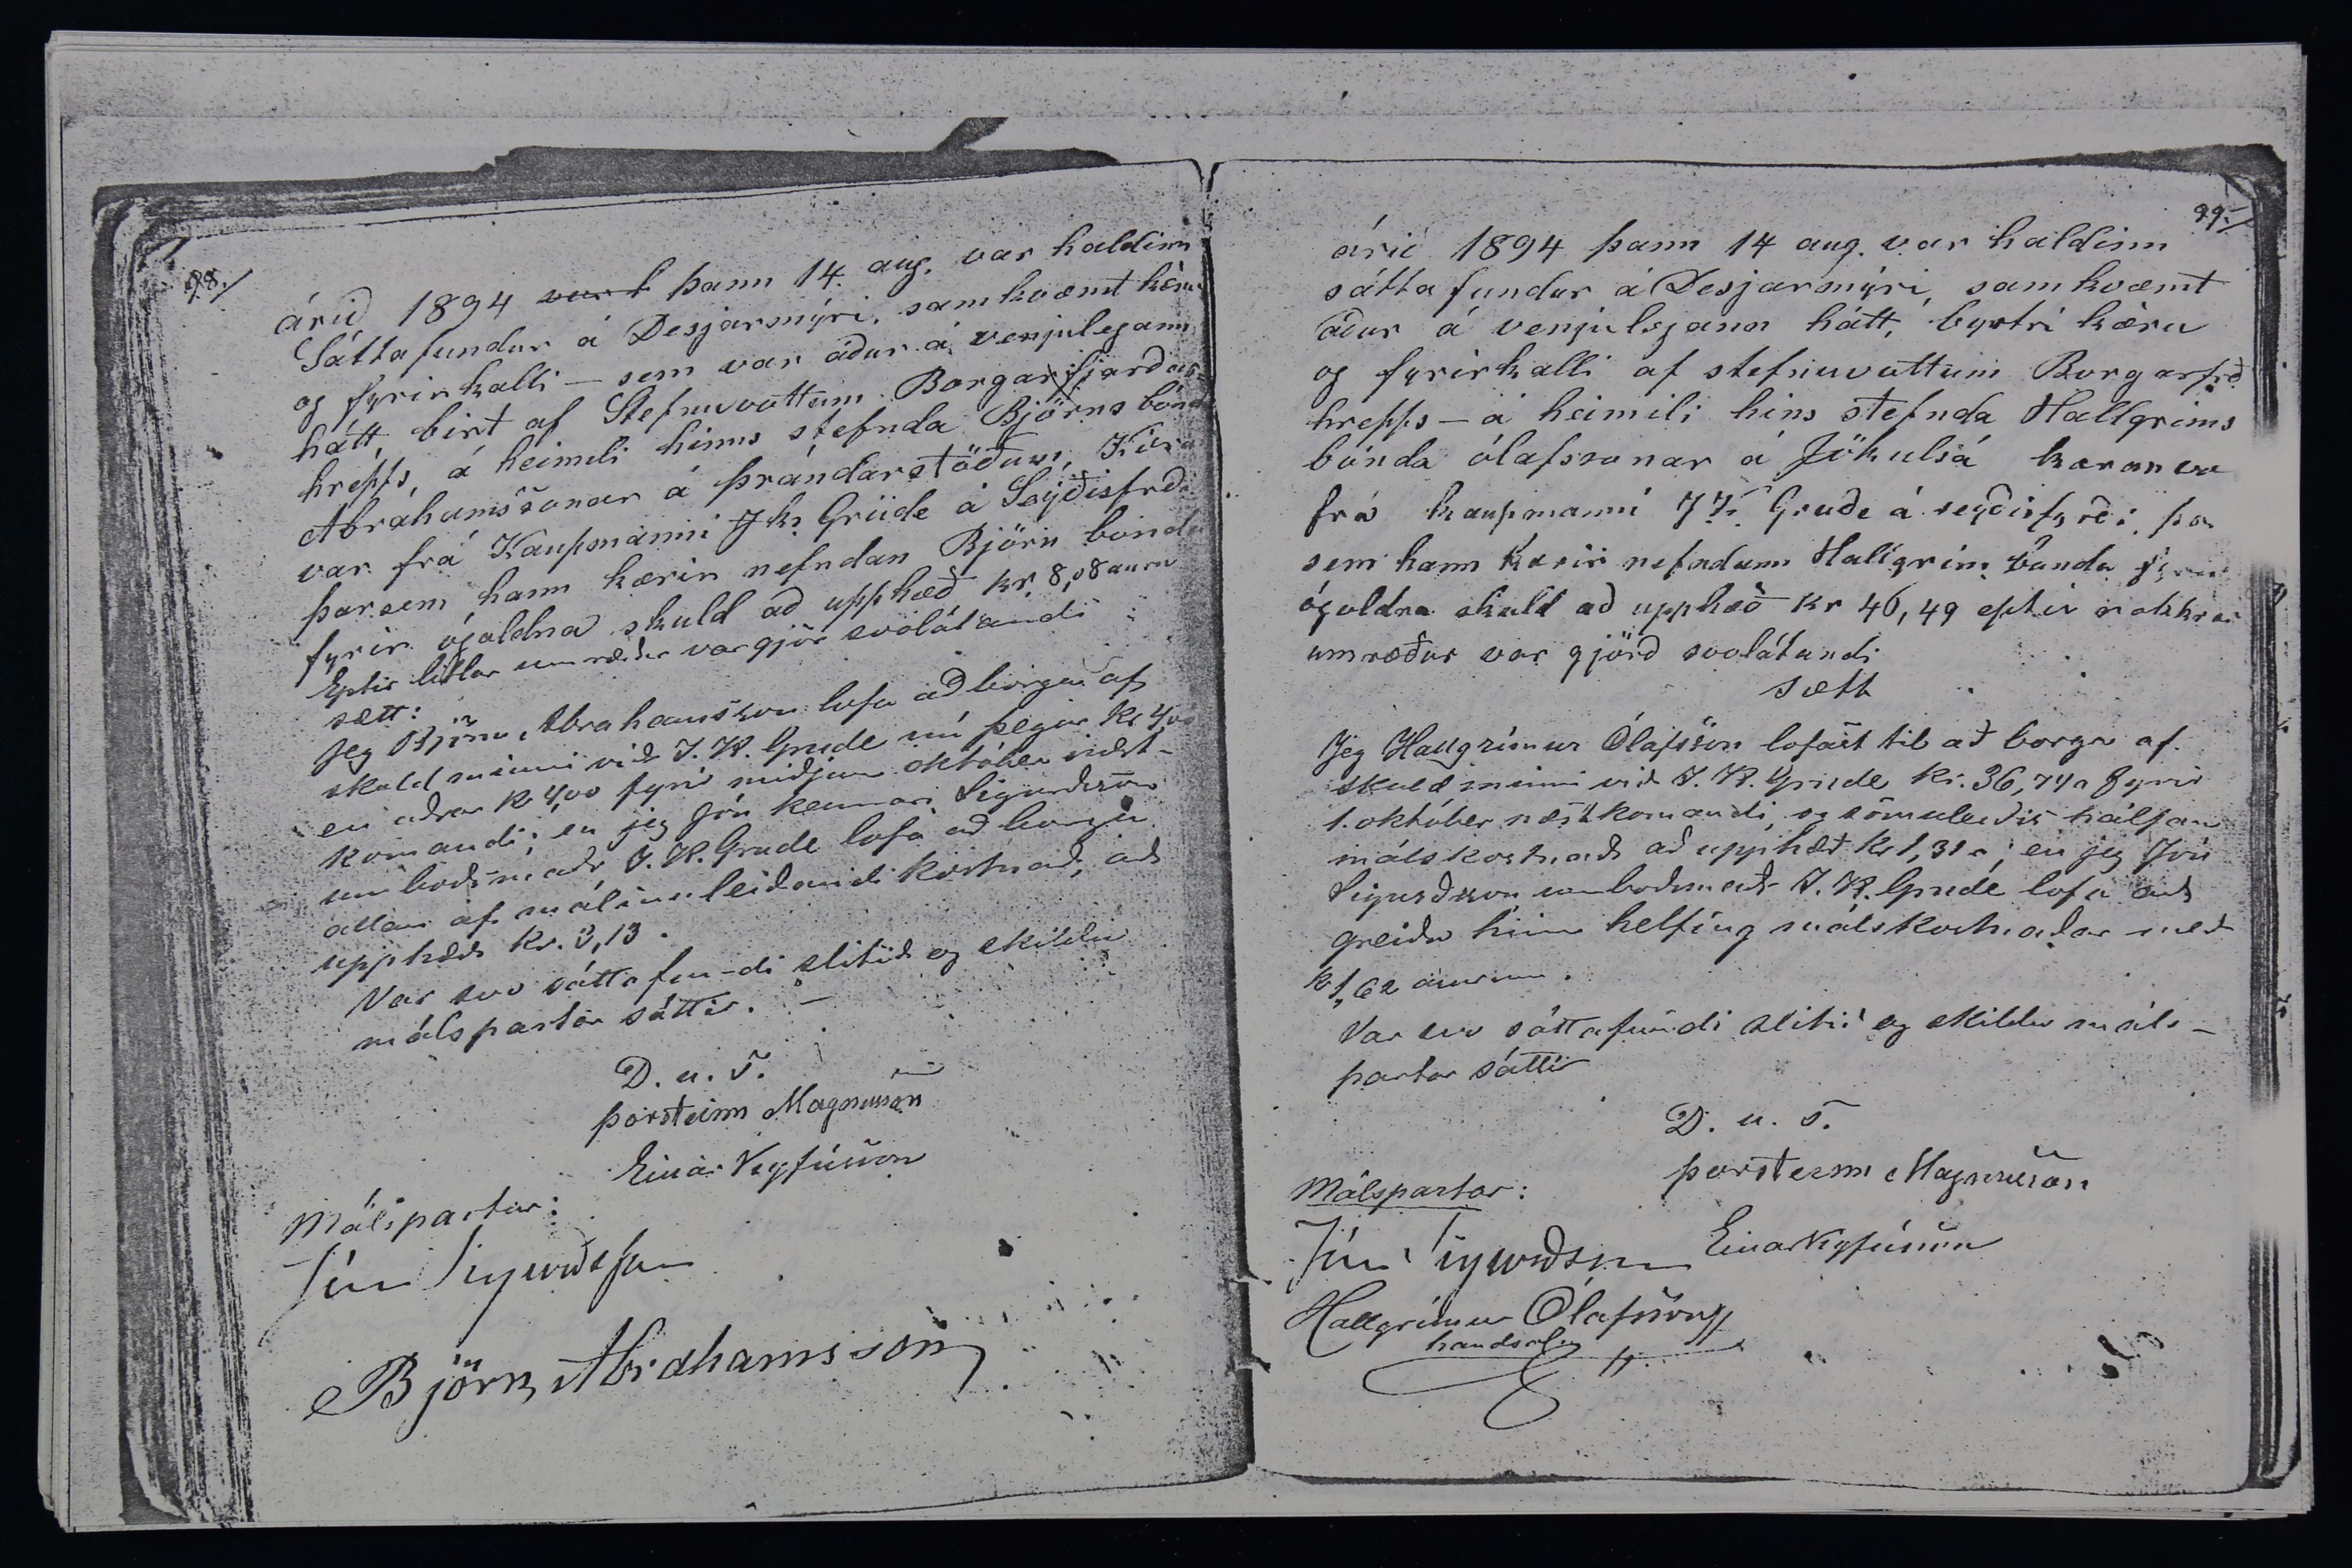 98./
árið 1894 var h þann 14. aug. var haldinn
Sáttafundur á Desjarmýri, samkvæmt kæru
og fyrirkalli – sem var áður á venjulegann
hátt, birt af Stefnuvottum Borgarfjarðar
hrepps, á heimili hinns stefnda Björns bónd
Abrahamssonar á Þrándarstöðum, Kæra
var frá Kaupmanni J K. Grüde á Seyðisfrd.
þarsem hann kærir nefndan Björn bónda
fyrir ógoldna skuld að upphæð kr. 8,08 aura
Eptir litlar umræður var gjör svolátandi
sætt:
Jeg Björn Abrahamsson lofa að borga af
skuld minni við J. K. Grude nú þegar Kr 4,00
en aðrar kr 4,00 fyri miðjan október næst-
komandi; en jeg Jón kennari Sigurðsson
umboðsmaðr J. K. Grude lofa að borga
allan af málinu leiðandi kostnað, að
upphæð kr. 3,13.
Var svo sáttafundi slitið og skildu
málspartar sáttir. –
D. u. s.
Þorsteinn Magnusson
Einar Vigfússon
Málspartar:
Jón Sigurðsson
Björn Abrahamsson
99./
árið 1894 þann 14 aug. var haldinn
sáttafundur á Desjarmýri, samkvæmt
áður á venjulegann hátt, byrtri kæru
og fyrirkalli af stefnuvottum Borgarfrð.
hrepps – á heimili hins stefnda Hallgríms
bónda ólafssonar á Jökulsá kæran va
frá kaupmanni J K Grude á seyðisfyrði þa
sem hann kærir nefndann Hallgrím bónda fyrir
ógoldna skuld að upphæð kr 46,49 eptir nokkrar
umræður var gjörð svolátandi
sætt
Jeg Hallgrímur Ólafsson lofast til að borga af
skuld minni við J. K. Grude kr. 36,74 a fyrir
1. október næstkomandi, og sömuleiðis hálfan
málskostnað að upphæð kr 1,31 a; en jeg Jón
Sigurðsson umboðsmaðr J. K. Grude lofa að
greiða hinn helfing málskostnaðar með
kr 1,62 aurum.
Var svo sáttafundi slitið og skildu máls-
partar sáttir
D. u. s.
Þorsteinn Magnusson
Málspartar:
Jón Sigurðsson Einar Vigfússon
Hallgrímur Ólafsson
handsalar